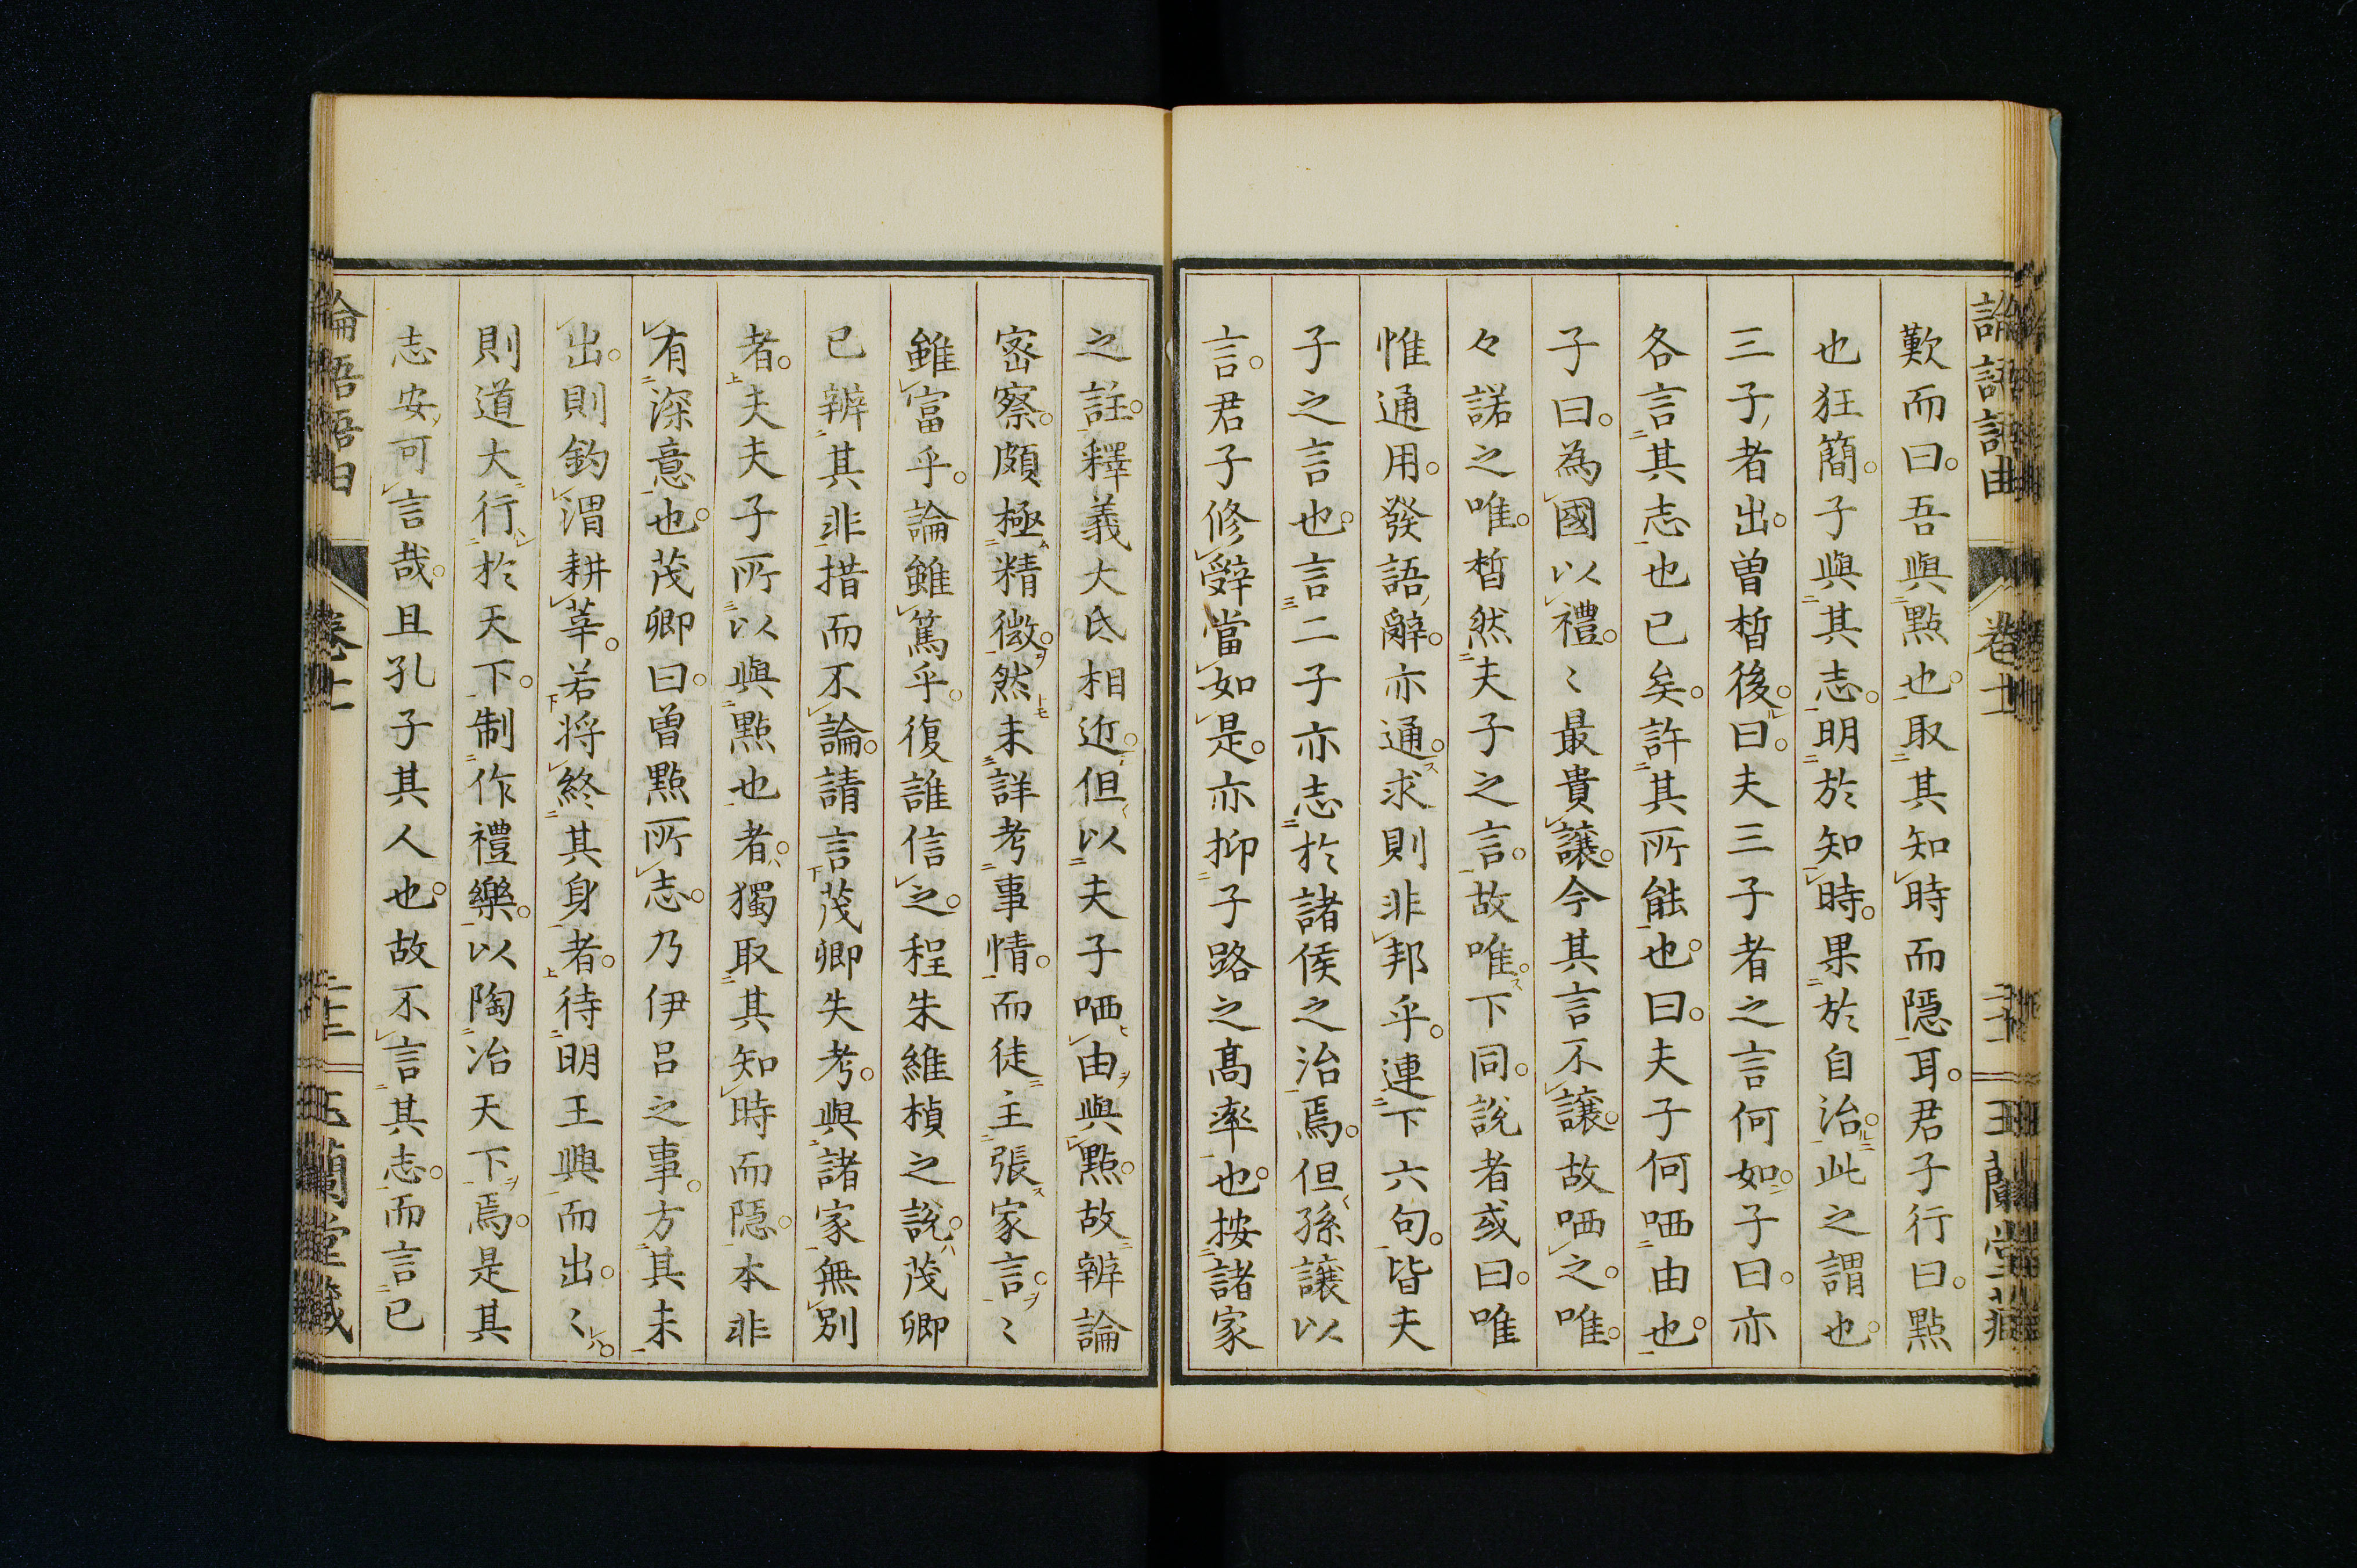 歎而曰。吾與點也。取其知時而隱耳。君子行曰。點
也狂簡。子與其志。明於知時。果於自治。此之謂也。
三子者出。曽晳後。曰。夫三子者之言何如。子曰。亦
各言其志也已矣。許其所能也。曰。夫子何哂由也。
子曰。為國以禮。〻最貴譲。今其言不譲。故哂之。唯。
々諾之唯。晳然夫子之言。故唯。下同。説者或曰。唯
惟通用。發語辭。亦通。求則非邦乎。連下六句。皆夫
子之言也。言二子亦志於諸侯之治焉。但孫譲以
言。君子修辭當如是。亦抑子路之髙率也。按諸家
之註。釋義大氐相近。但以夫子哂由與點。故辨論
宻察。頗極精微。然未詳考事情。而徒主張家言。〻
雖富乎。論雖篤乎。復誰信之。程朱維楨之説。茂卿
已辨其非。措而不論。請言茂卿失考。與諸家無別
者。夫夫子所以與點也者。獨取其知時而隱。本非
有深意也。茂卿曰。曽點所志。乃伊呂之事。方其未
出。則釣渭耕莘。若將終其身者。待明王興而出。〻
則道大行於天下。制作禮樂。以陶冶天下焉。是其
志安可言哉。且孔子其人也。故不言其志。而言已